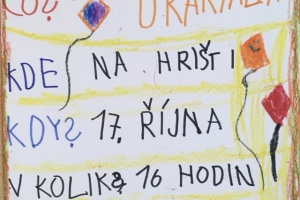 CO?
KDE NA HRIŠTI
KDY? 17. ŘÍJNA
V KOLIK? 16 HODIN